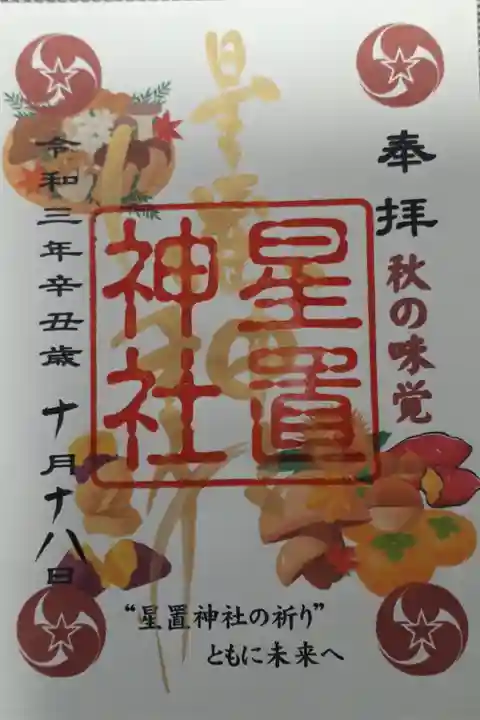 奉拝
秋の味覚
星置神社
星置
神社
令和三年辛丑歳 十月十八日
“星置神社の祈り”
ともに未来へ